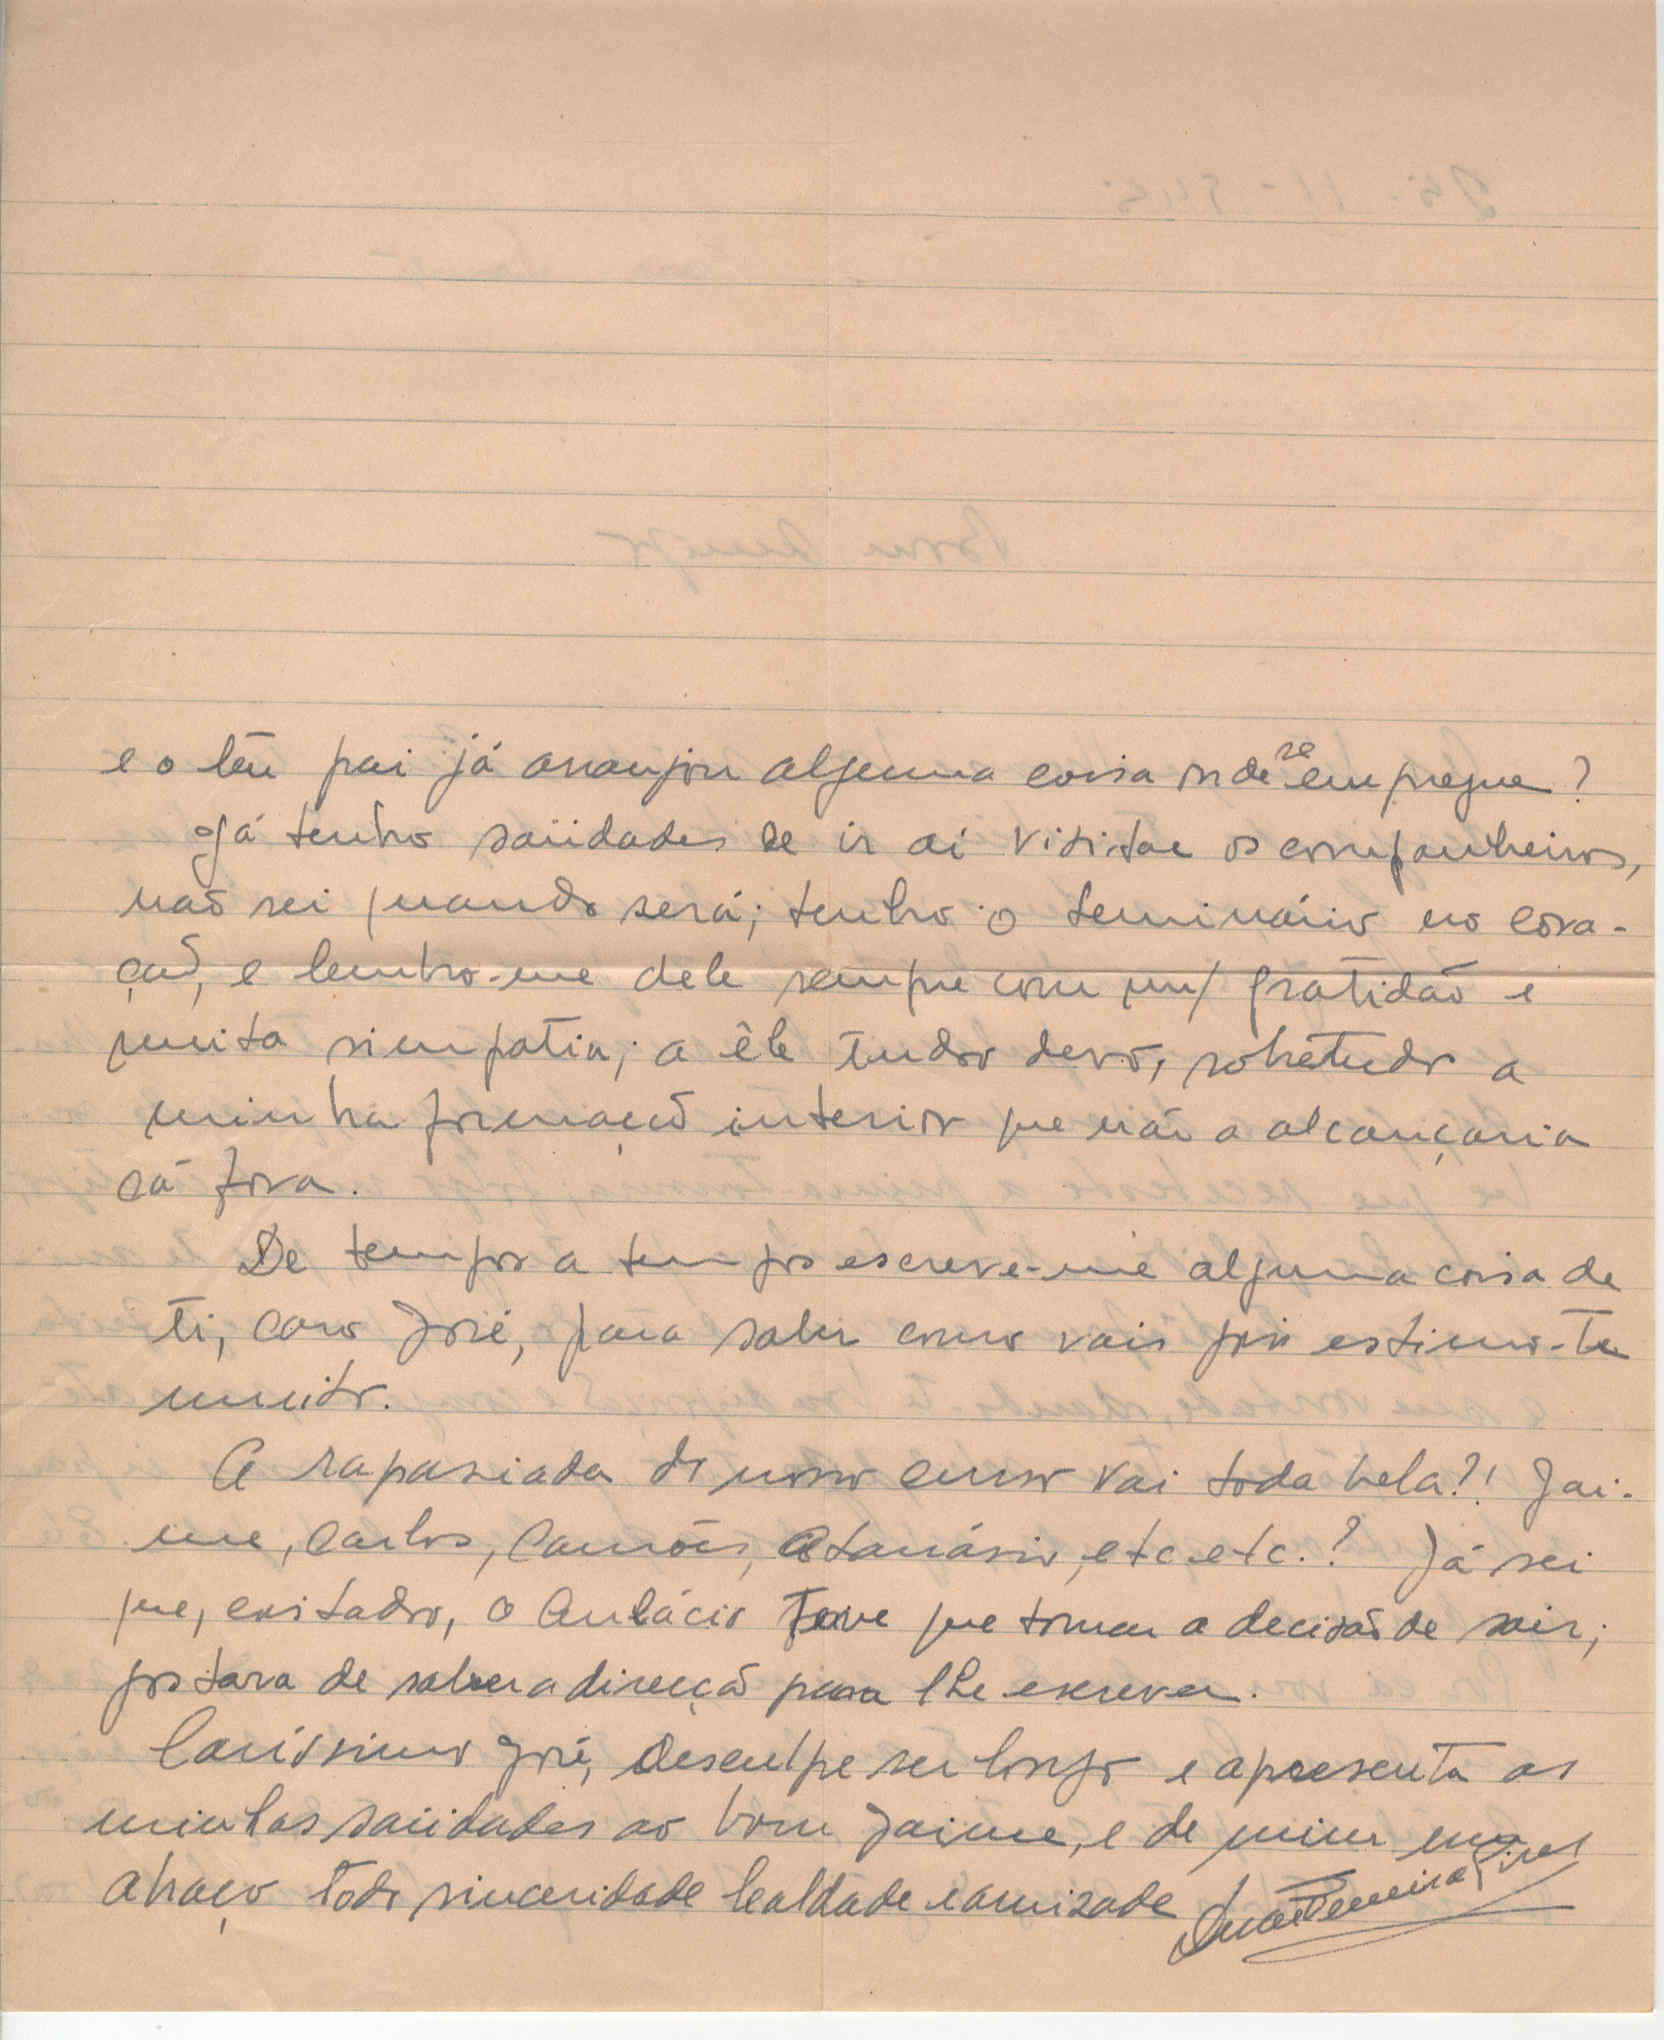 e o teu pai já arranjou alguma coisa onde se empregue?
Já tenho saüdades de ir aí visitar os companheiros,
não sei quando será; tenho o seminário no cora-
ção, e lembro-me dele sempre com mt/ gratidão e
muita simpatia; a êle tudo devo, sobretudo a
minha formação interior que não a alcançaria
cá fora.
De tempos a tempos escreve-me alguma coisa de
ti, caro José, para saber como vais pois estimo-te
muito.
A rapaziada do nosso curso vai toda bela?! Jai-
me, Carlos, Camões, Atanásio, etc etc.? Já sei
que, coitado, o teve que tomar a decisão de sair;
gostava de saber a direcção para lhe escrever.
Caríssimo José, desculpe ser longo e apresenta as
minhas saüdades ao bom Jaime, e de mim um
abraço todo sinceridade lealdade e amizade